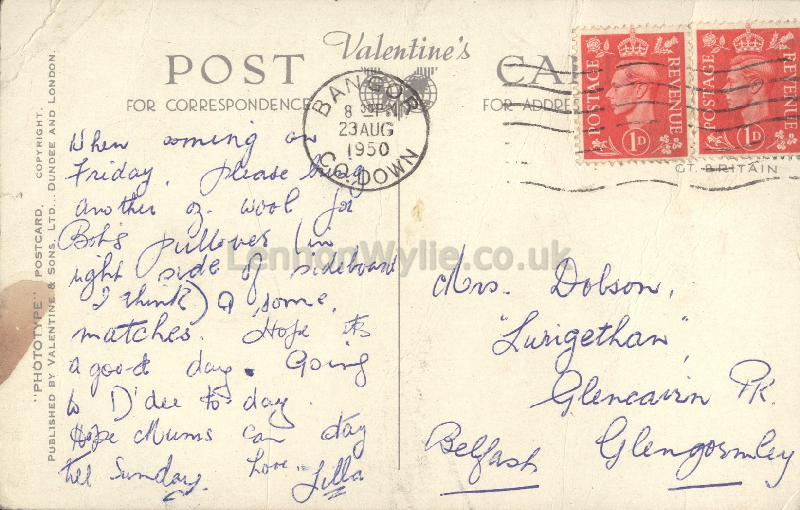 POST Valentine's CA
FOR CORRESPONDENCE FOR ADDRE
BANGOR
8 PM
23 AUG
1950
CO. DOWN
POSTAGE REVENUE
1D
POSTAGE REVENUE
1D
GT. BRITAIN
"PHOTOTYPE" POSTCARD. COPYRIGHT.
PUBLISHED BY VALENTINE & SONS, LTD., DUNDEE AND LONDON.
When coming on
Friday, please bring
another oz. wool for
Bob's pullover (in
right side of sideboard
I think) & some
matches. Hope its
a good day. Going
to D'dee to-day.
Hope Mums can stay
till Sunday. Love. Lilla
Mrs. Dobson,
"Lurigethan",
Glencairn Pk.
Glengormley
Belfast
LennonWylie.co.uk